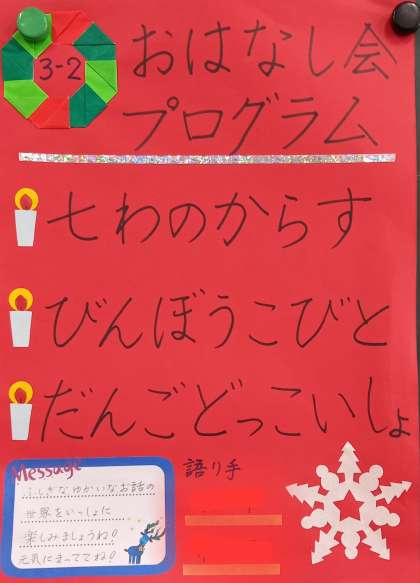 3-2
おはなし会
プログラム
七わのからす
びんぼうこびと
だんごどっこいしょ
Message
ふしぎなゆかいなお話の
世界をいっしょに
楽しみましょうね!
元気にまっててね!
語り手